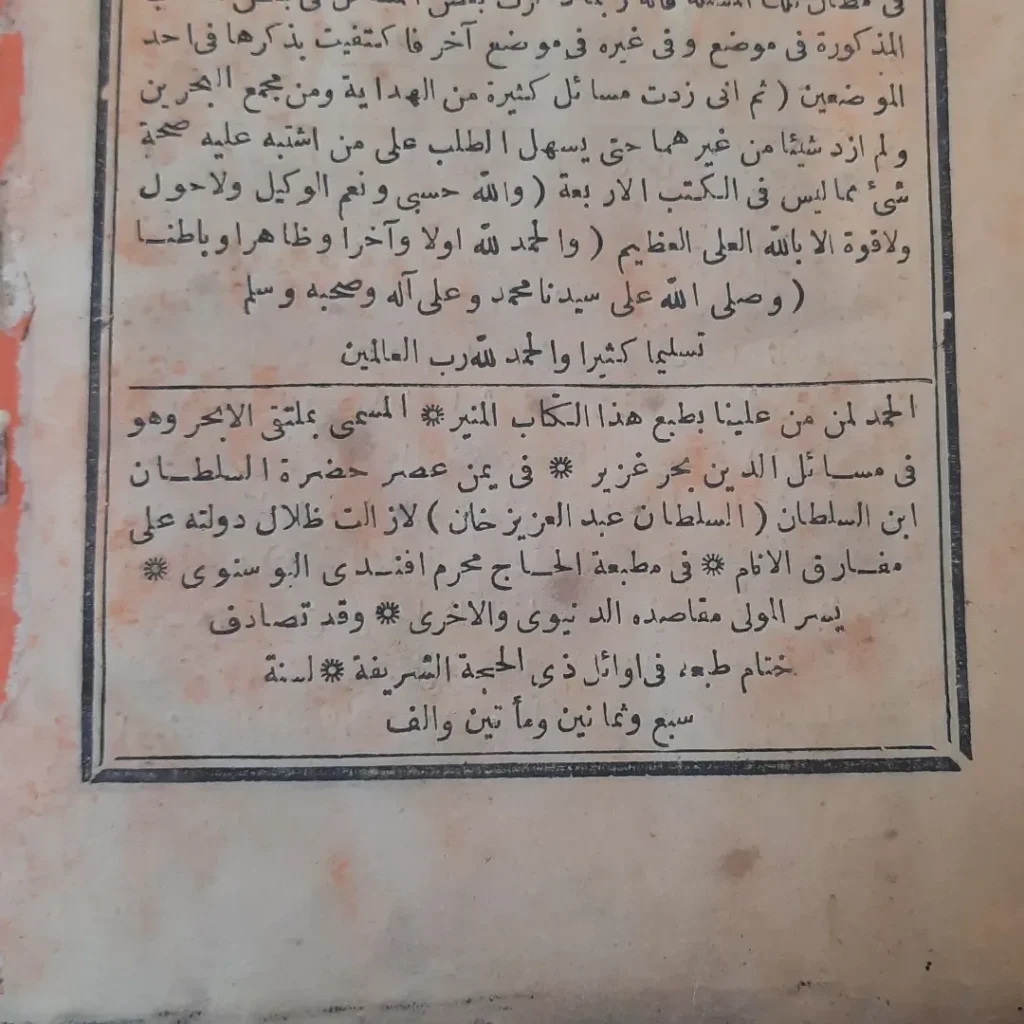 المذكورة فى موضع وفى غيره فى موضع آخر فاكتفيت بذكرها فى احد
الموضعين ( ثم انى زدت مسائل كثيرة من الهداية ومن مجمع البحرين
ولم ازد شيئا من غيرهما حتى يسهل الطلب على من اشتبه عليه صحة
شئ مماليس فى الكتب الاربعة ( والله حسبى ونعم الوكيل ولاحول
ولاقوة الا بالله العلى العظيم ( والحمد لله اولا وآخرا وظاهرا وباطنا
( وصلى الله على سيدنا محمد وعلى آله وصحبه وسلم
تسليما كثيرا والحمد لله رب العالمين
الحمد لمن من علينا بطبع هذا الكتاب المنير ❋ المسمى بملتقى الابحر وهو
فى مسائل الدين بحر غزير ❋ فى يمن عصر حضرة السلطان
ابن السلطان ( السلطان عبد العزيز خان ) لازالت ظلال دولته على
مفارق الانام ❋ فى مطبعة الحاج محرم افندى البوسنوى ❋
يسر المولى مقاصده الدنيوى والاخرى ❋ وقد تصادف
ختام طبعه فى اوائل ذى الحجة الشريفة ❋ لسنة
سبع وثمانين ومأتين والف